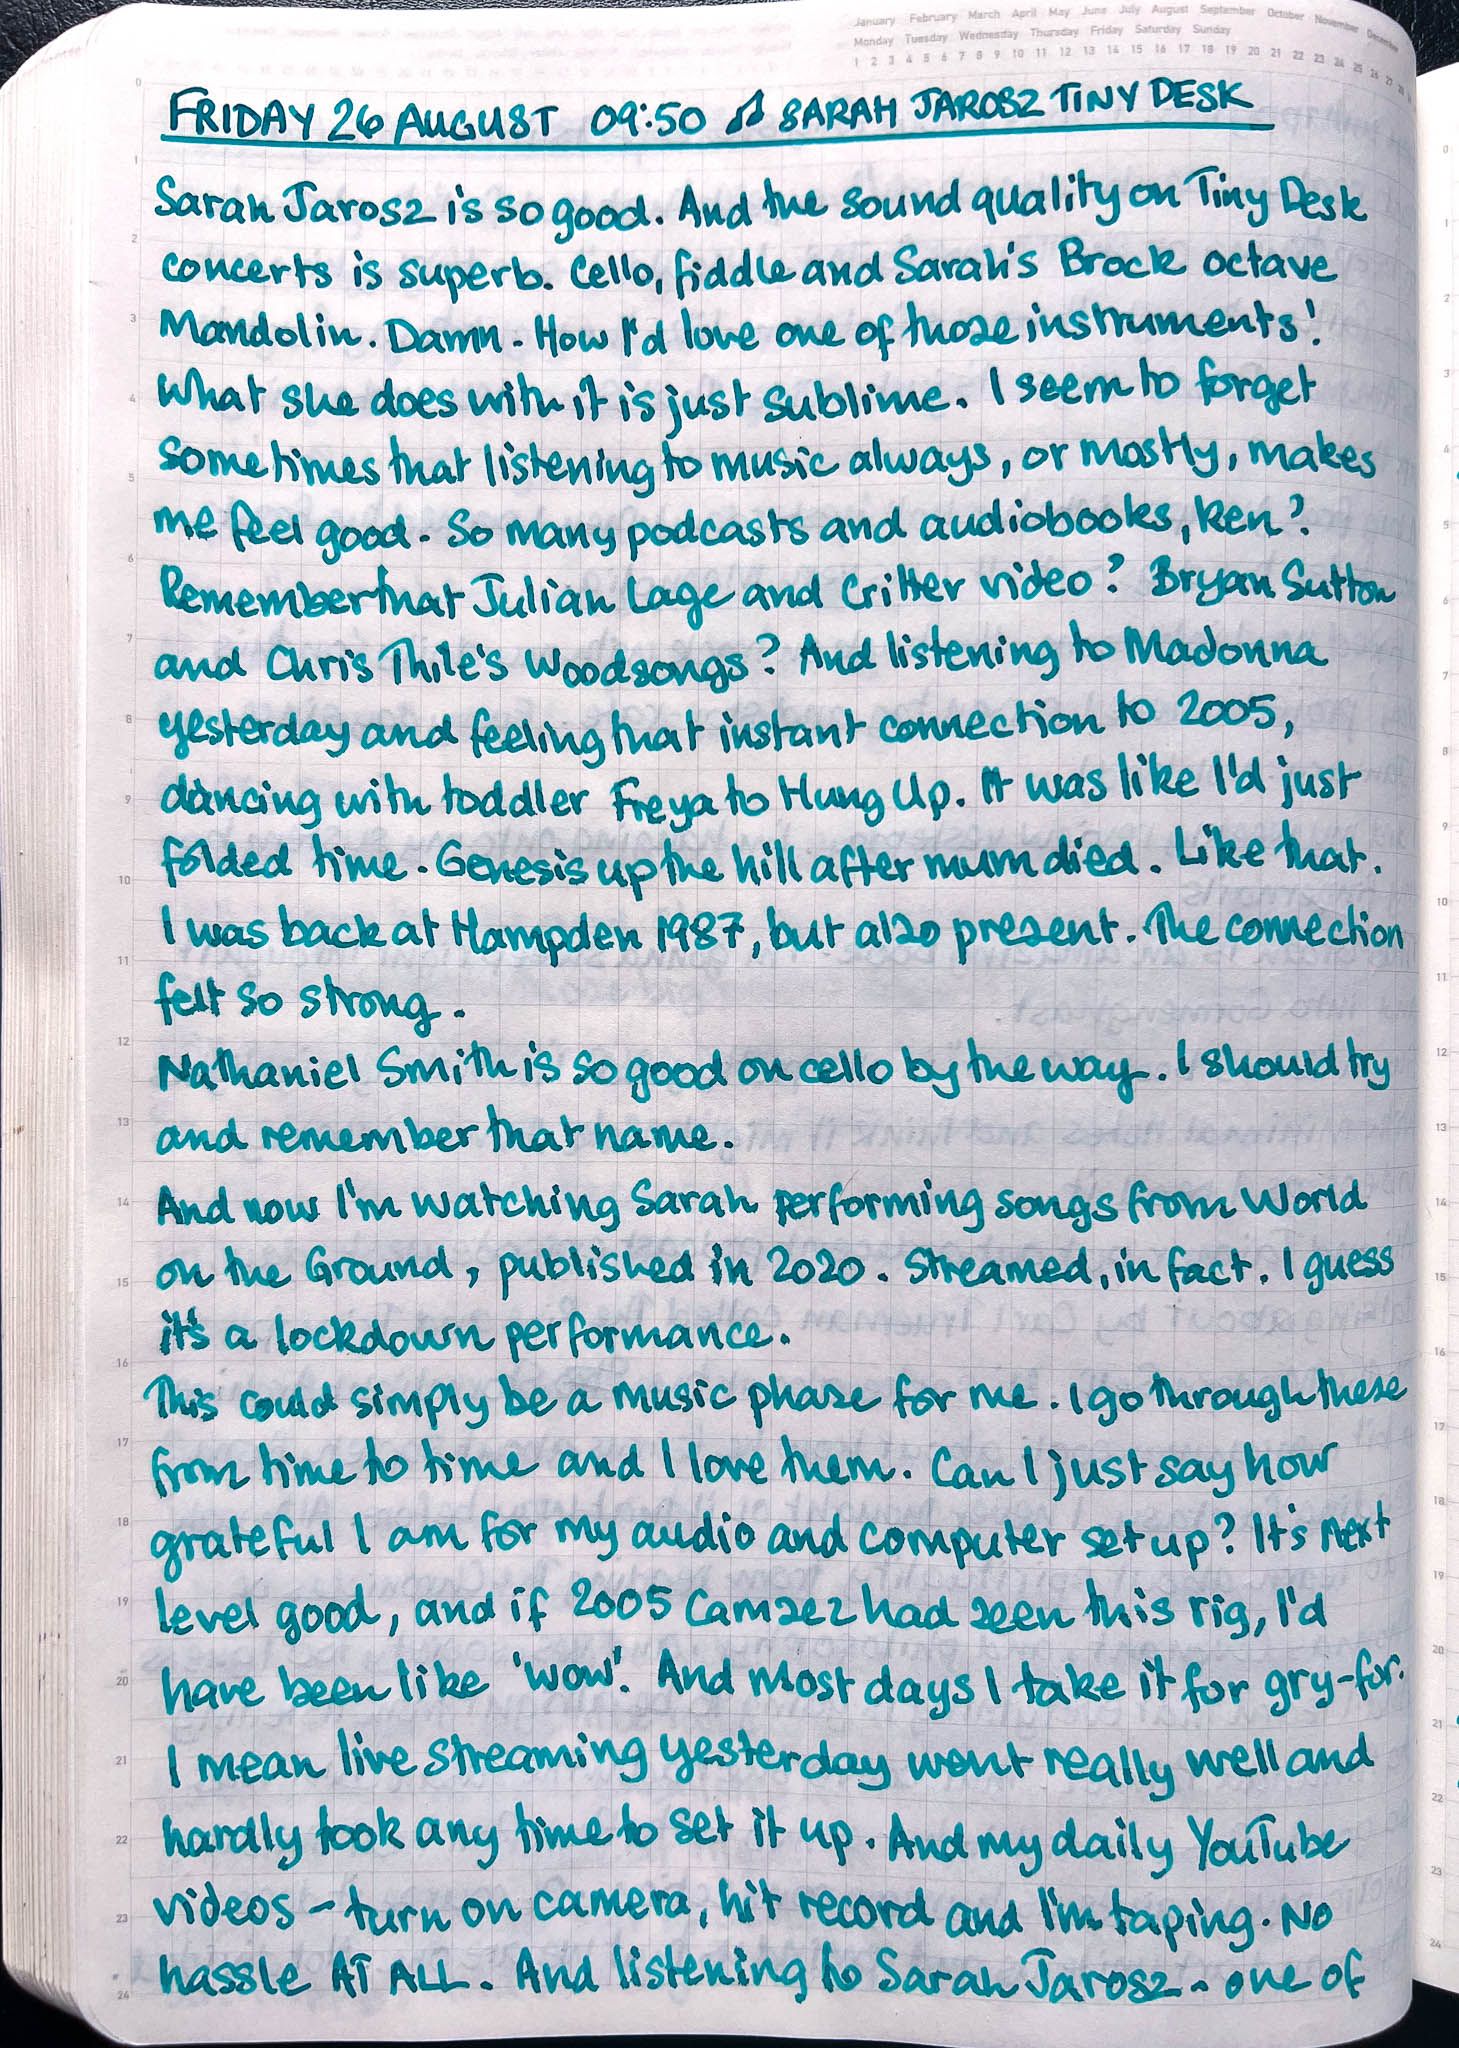 January February March April May June July August September October November December
Monday Tuesday Wednesday Thursday Friday Saturday Sunday
1 2 3 4 5 6 7 8 9 10 11 12 13 14 15 16 17 18 19 20 21 22 23 24 25 26 27 28
FRIDAY 26 AUGUST 09:50 ♫ SARAH JAROSZ TINY DESK
Sarah Jarosz is so good. And the sound quality on Tiny Desk
concerts is superb. Cello, fiddle and Sarah's Brock octave
Mandolin. Damn. How I'd love one of those instruments!
What she does with it is just sublime. I seem to forget
sometimes that listening to music always, or mostly, makes
me feel good. So many podcasts and audiobooks, ken?
Remember that Julian Lage and Critter video? Bryan Sutton
and Chris Thile's Woodsongs? And listening to Madonna
yesterday and feeling that instant connection to 2005,
dancing with toddler Freya to Hung Up. It was like I'd just
folded time. Genesis up the hill after mum died. Like that.
I was back at Hampden 1987, but also present. The connection
felt so strong.
Nathaniel Smith is so good on cello by the way. I should try
and remember that name.
And now I'm watching Sarah performing songs from World
on the Ground, published in 2020. Streamed, in fact. I guess
it's a lockdown performance.
This could simply be a music phase for me. I go through these
from time to time and I love them. Can I just say how
grateful I am for my audio and computer set up? It's next
level good, and if 2005 Camzez had seen this rig, I'd
have been like 'wow'. And most days I take it for gry-for.
I mean live streaming yesterday went really well and
hardly took any time to set it up. And my daily YouTube
videos – turn on camera, hit record and I'm taping. No
hassle AT ALL. And listening to Sarah Jarosz – one of